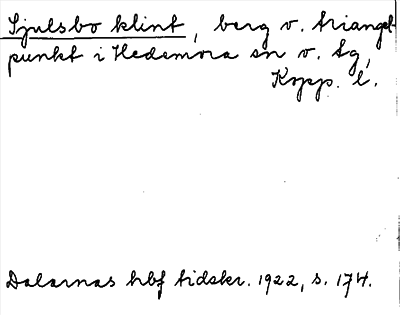 Sjulsbo klint, berg v. triangel-
punkt i Hedemora sn v. Sg,
Kopp. l.
Dalarnas hbf tidskr. 1922, s. 174.